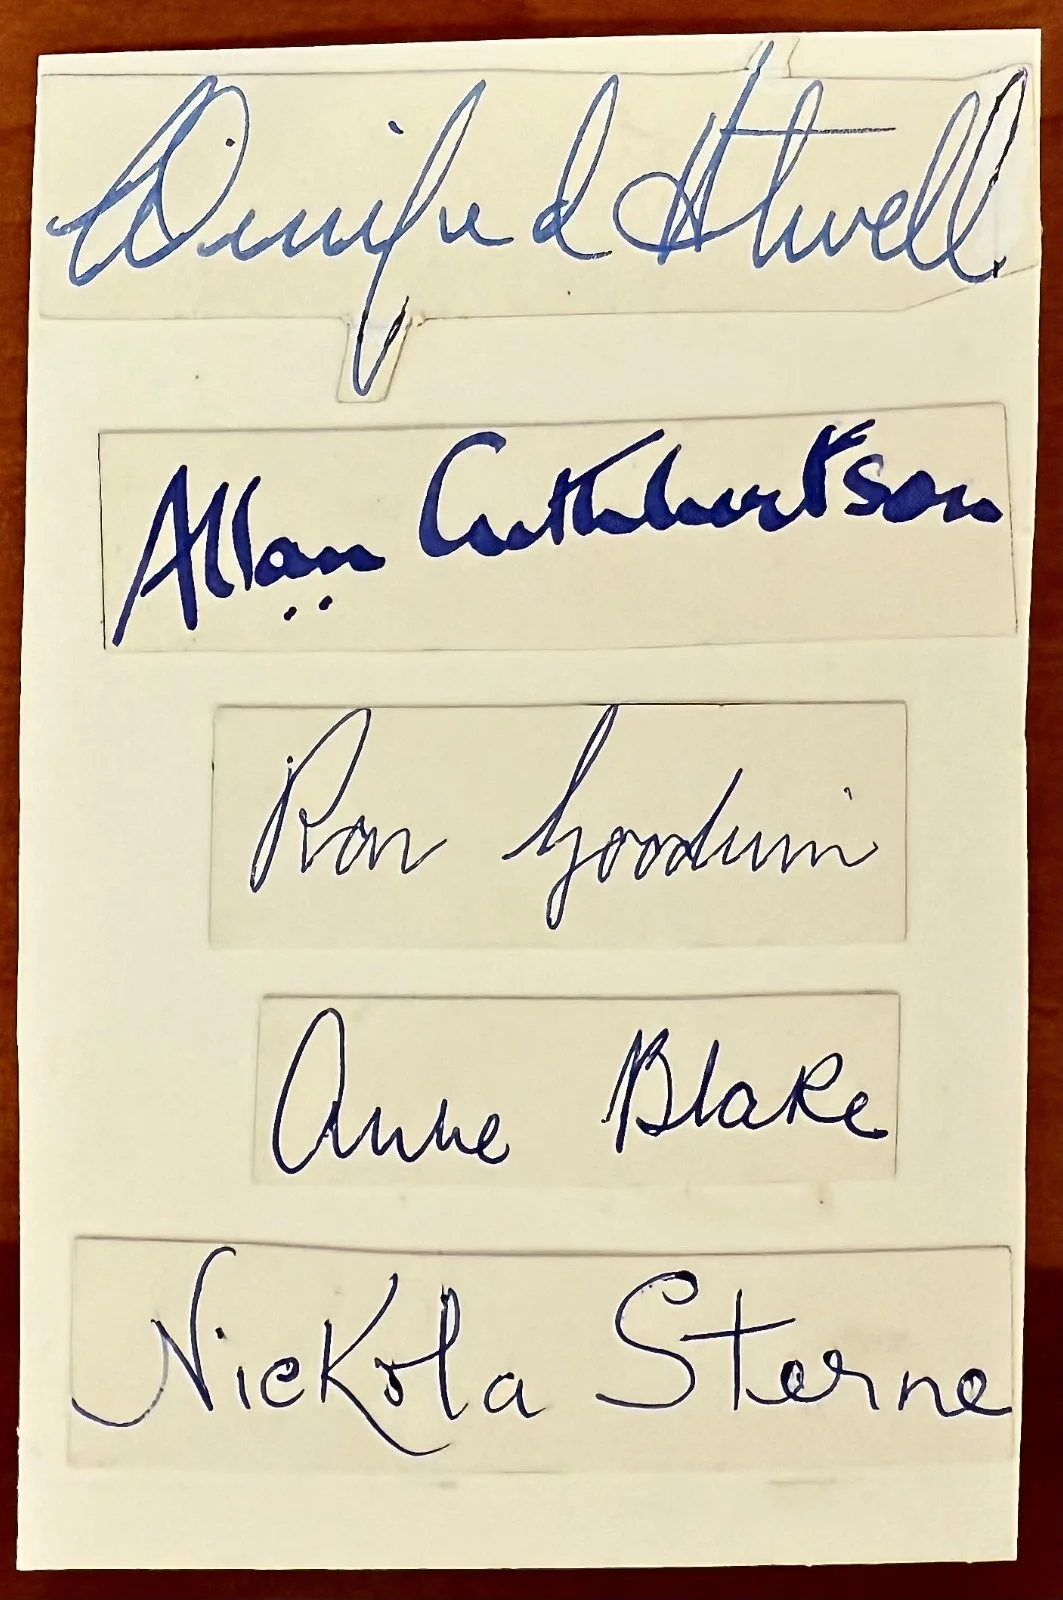 Winifred Atwell
Allan Cuthbertson
Ron Goodwin
Anne Blake
Nickola Sterne